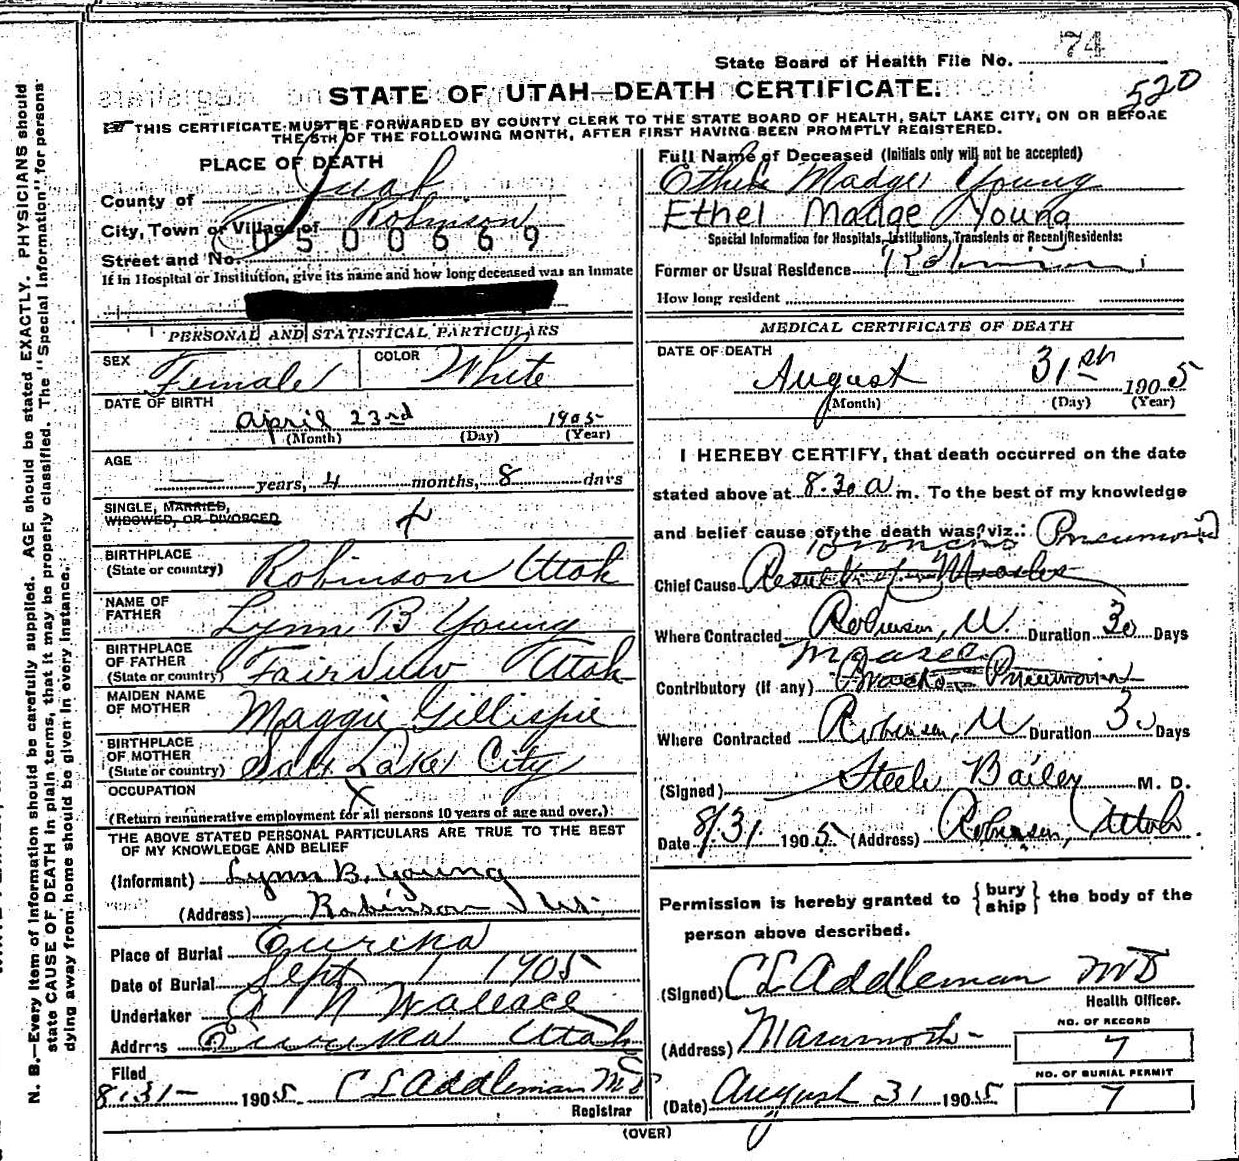 State Board of Health File No. 74
520
STATE OF UTAH—DEATH CERTIFICATE.
THIS CERTIFICATE MUST BE FORWARDED BY COUNTY CLERK TO THE STATE BOARD OF HEALTH, SALT LAKE CITY, ON OR BEFORE
THE 5TH OF THE FOLLOWING MONTH, AFTER FIRST HAVING BEEN PROMPTLY REGISTERED.
N. B.—Every item of information should be carefully supplied. AGE should be stated EXACTLY. PHYSICIANS should
state CAUSE OF DEATH in plain terms, that it may be properly classified. The "Special Information" for persons
dying away from home should be given in every instance.
PLACE OF DEATH
County of Juab
City, Town or Village of Robinson
0500669
Street and No.
If in Hospital or Institution, give its name and how long deceased was an inmate
PERSONAL AND STATISTICAL PARTICULARS
SEX Female COLOR White
DATE OF BIRTH
April 23rd 1905
(Month) (Day) (Year)
AGE
— years, 4 months, 8 days
SINGLE, MARRIED,
WIDOWED, OR DIVORCED
BIRTHPLACE
(State or country) Robinson Utah
NAME OF
FATHER Lynn B Young
BIRTHPLACE
OF FATHER
(State or country) Fairview Utah
MAIDEN NAME
OF MOTHER Maggie Gillispie
BIRTHPLACE
OF MOTHER
(State or country) Salt Lake City
OCCUPATION X
(Return remunerative employment for all persons 10 years of age and over.)
THE ABOVE STATED PERSONAL PARTICULARS ARE TRUE TO THE BEST
OF MY KNOWLEDGE AND BELIEF
(Informant) Lynn B. Young
(Address) Robinson
Place of Burial Eureka
Date of Burial Sept 1 1905
Undertaker A N Wallace
Address Eureka Utah
Filed
8-31- 1905. C E Addleman MD
Registrar
Full Name of Deceased (Initials only will not be accepted)
Ethel Madge Young
Ethel Madge Young
Special Information for Hospitals, Institutions, Transients or Recent Residents:
Former or Usual Residence Robinson
How long resident
MEDICAL CERTIFICATE OF DEATH
DATE OF DEATH
August 31 1905
(Month) (Day) (Year)
I HEREBY CERTIFY, that death occurred on the date
stated above at 8.30 a m. To the best of my knowledge
and belief cause of the death was, viz.:
Broncho Pneumonia
Chief Cause Result of Measles
Where Contracted Robinson, U. Duration 30 Days
Measles
Contributory (if any) Broncho Pneumonia
Where Contracted Robinson, U Duration 30 Days
(Signed) Steele Bailey M. D.
Date 8/31 1905 (Address) Robinson, Utah
Permission is hereby granted to {bury ship} the body of the
person above described.
(Signed) C E Addleman MD
Health Officer.
(Address) Mammoth
NO. OF RECORD
7
NO. OF BURIAL PERMIT
7
(Date) August 31 1905
(OVER)